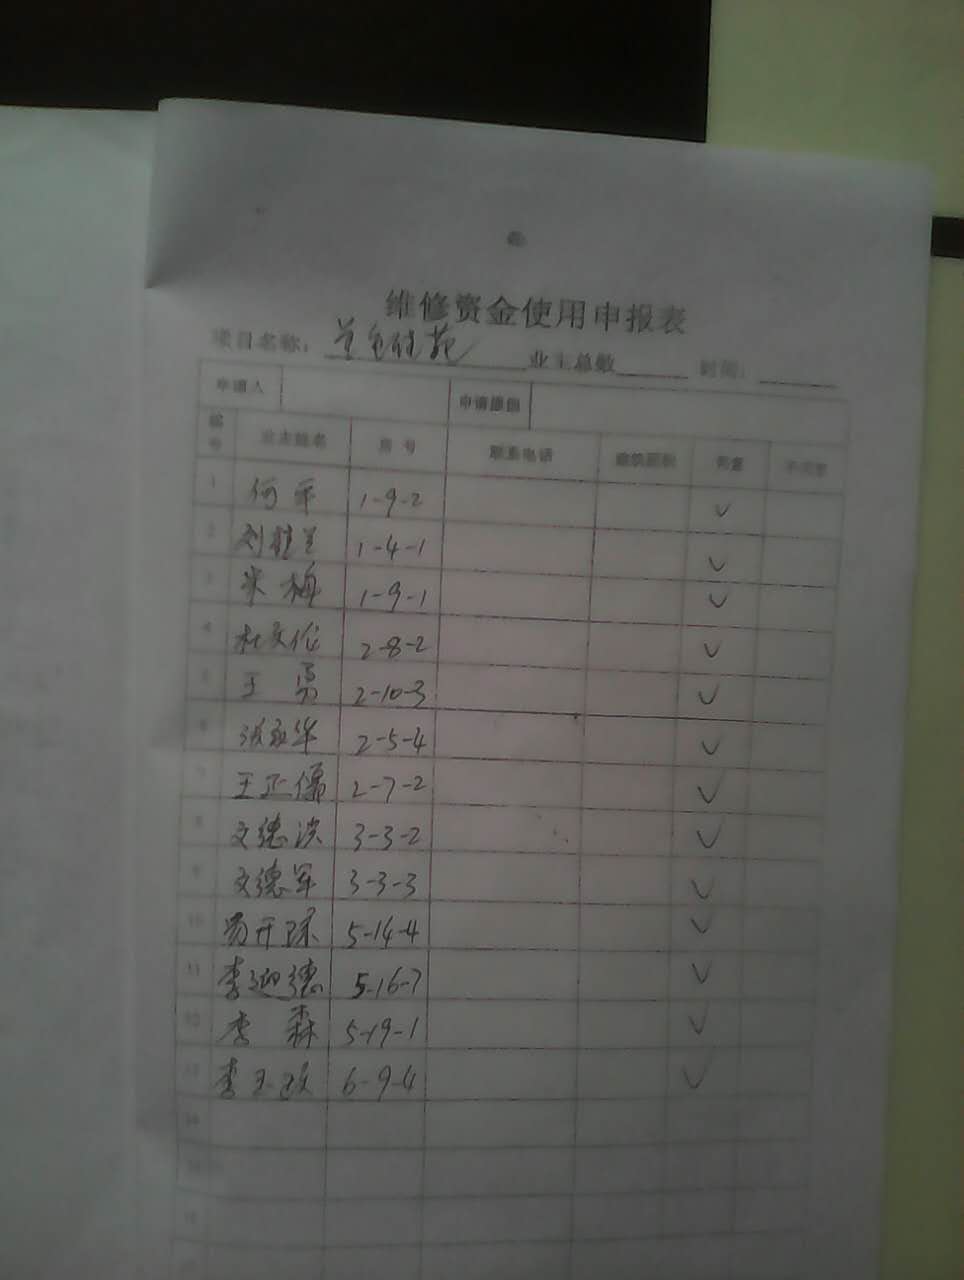 维修资金使用申报表
项目名称： 业主总数 时间：
申请人 申请原因
编号 业主姓名 房号 联系电话 建筑面积 同意 不同意
1 何平 1-9-2 ✓
2 刘桂兰 1-4-1 ✓
3 米梅 1-9-1 ✓
4 杜文伦 2-8-2 ✓
5 王勇 2-10-3 ✓
6 张永华 2-5-4 ✓
7 王正儒 2-7-2 ✓
8 文德洪 3-3-2 ✓
9 文德军 3-3-3 ✓
10 5-14-4 ✓
11 李迎德 5-16-7 ✓
12 李森 5-19-1 ✓
13 李玉 6-9-4 ✓
14
15